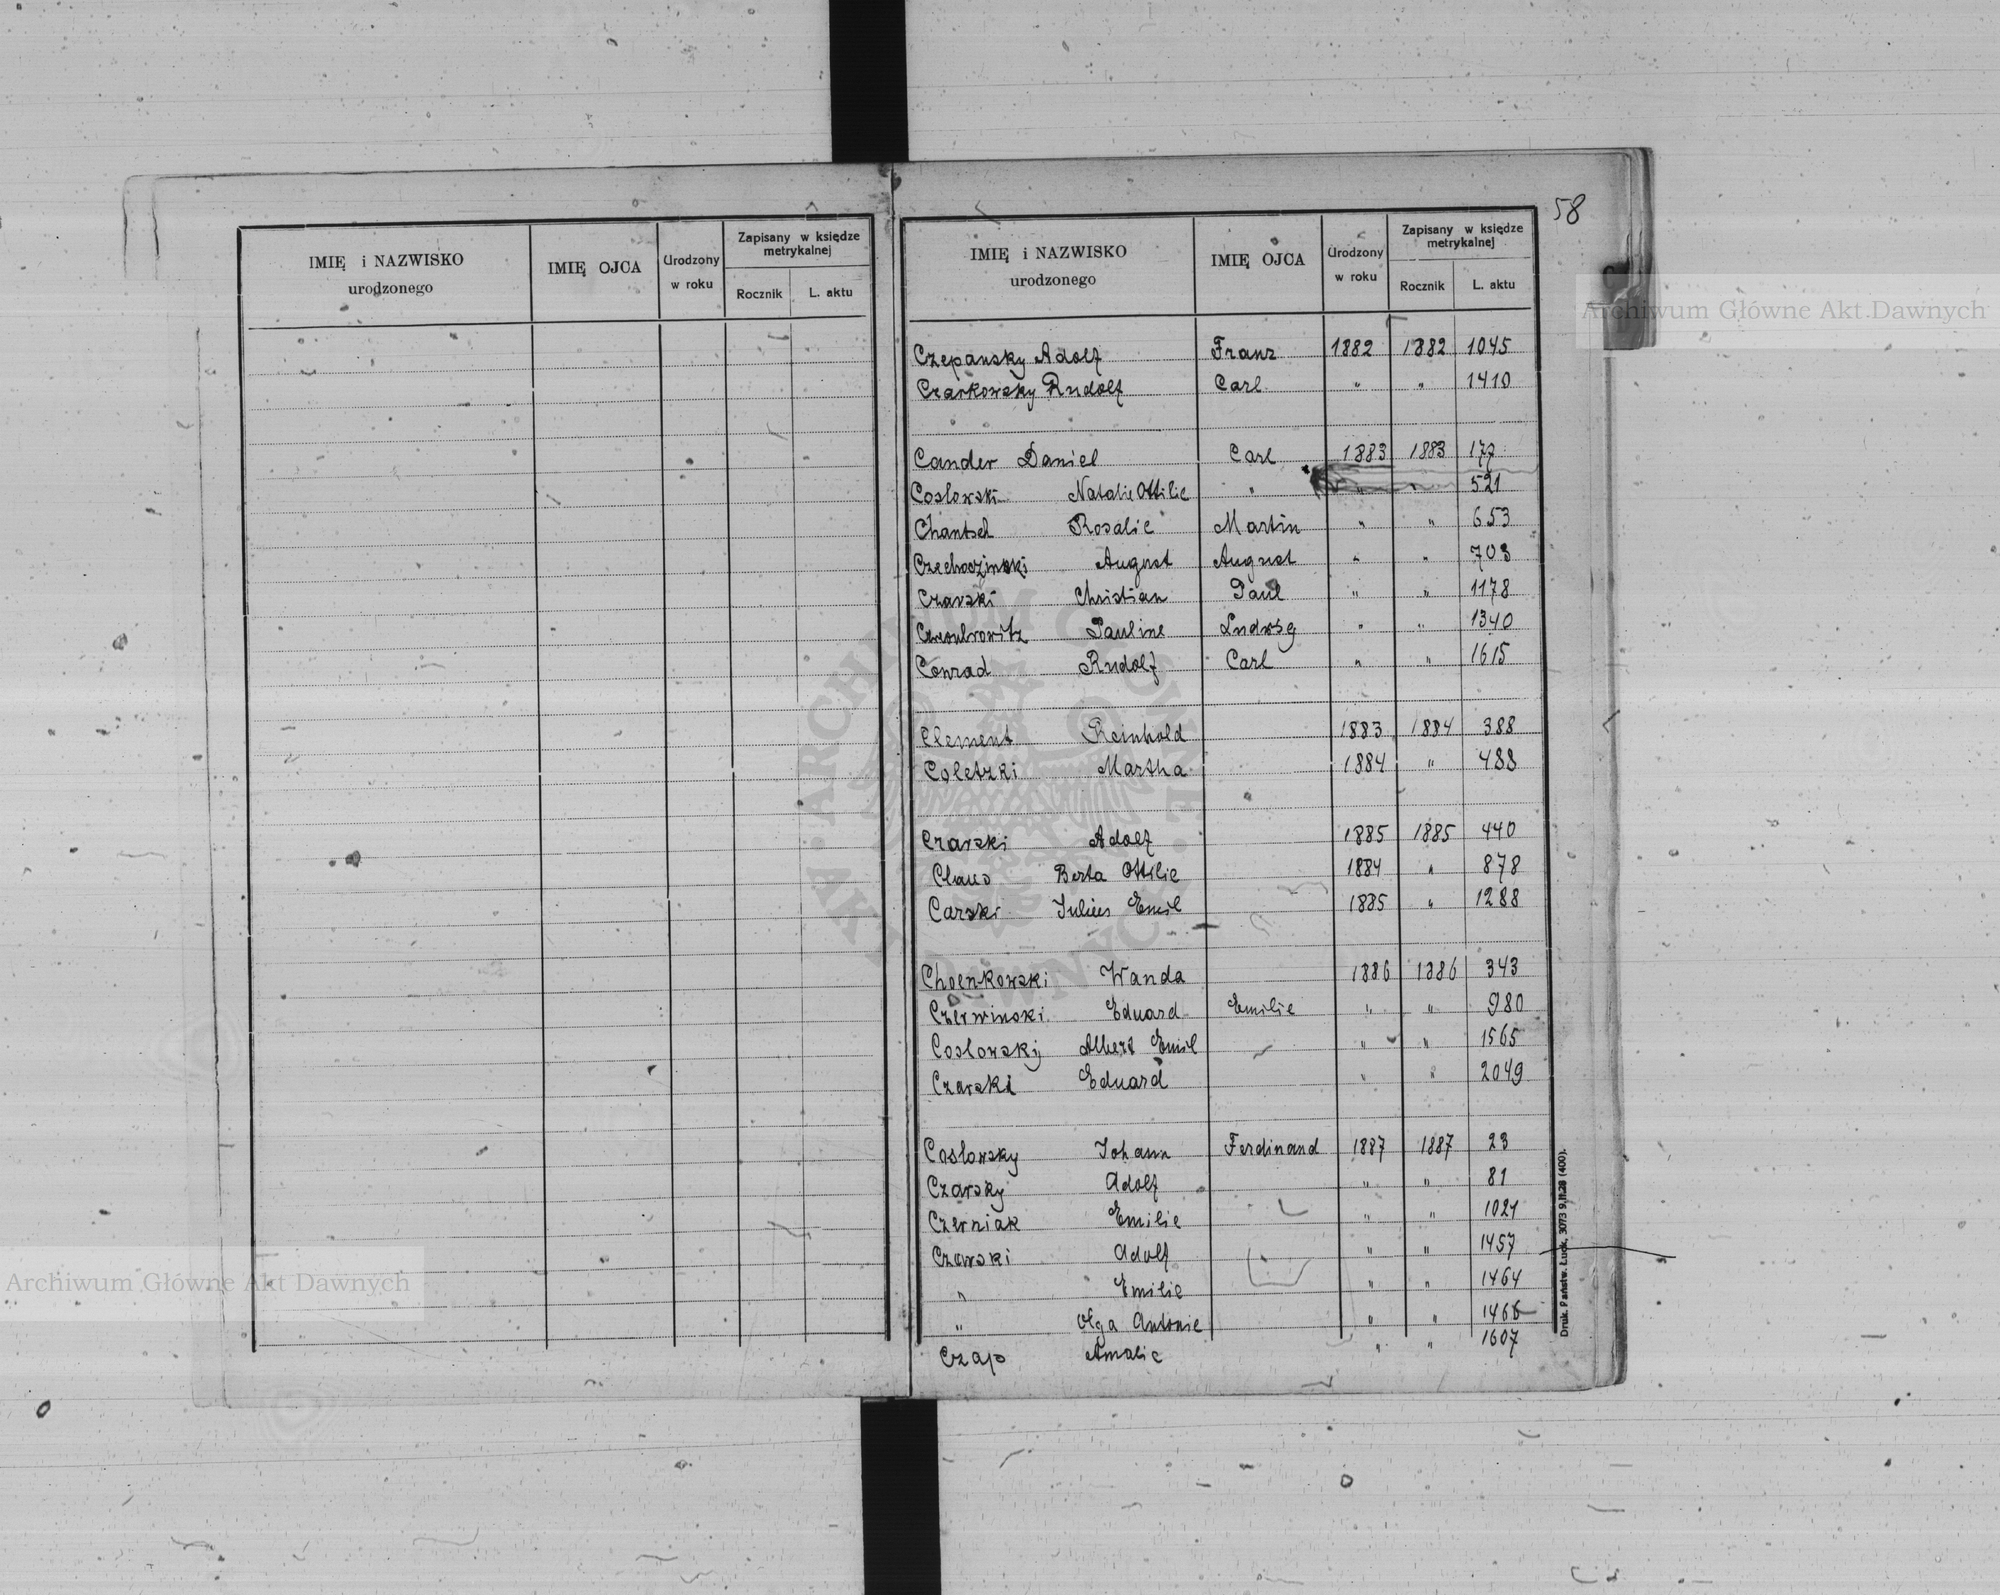 58
IMIĘ i NAZWISKO urodzonego | IMIĘ OJCA | Urodzony w roku | Zapisany w księdze metrykalnej | Rocznik | L. aktu
IMIĘ i NAZWISKO urodzonego | IMIĘ OJCA | Urodzony w roku | Zapisany w księdze metrykalnej | Rocznik | L. aktu
Czepansky Adolf Franz 1882 1882 1045
Czarkowsky Rudolf Carl " " 1410
Cander Daniel Carl 1883 1883 177
Coslowski Natalie Ottilie " " " 521
Chantsch Rosalie Martin " " 653
Czechoczinski August August " " 703
Czarski Christian Paul " " 1178
Pauline Ludwig " " 1340
Conrad Rudolf Carl " " 1615
Clement Reinhold 1883 1884 388
Coletzki Martha 1884 " 488
Czarski Adolf 1885 1885 440
Claus Berta Ottilie 1884 " 878
Carski Julius Emil 1885 " 1288
Choenkowski Wanda 1886 1886 343
Czerwinski Eduard Emilie " " 980
Coslowskij Albert Emil " " 1565
Czarski Eduard " " 2049
Coslowsky Johann Ferdinand 1887 1887 23
Czarsky Adolf " " 81
Czerniak Emilie " " 1021
Czarski Adolf " " 1457
" Emilie " " 1464
" Olga Antonie " " 1466
Czap Amalie " " 1607
Druk. Państw. Łuck, 3073 9.II.28 (400).
Archiwum Główne Akt Dawnych
Archiwum Główne Akt Dawnych
ARCHIWUM GŁÓWNE AKT DAWNYCH